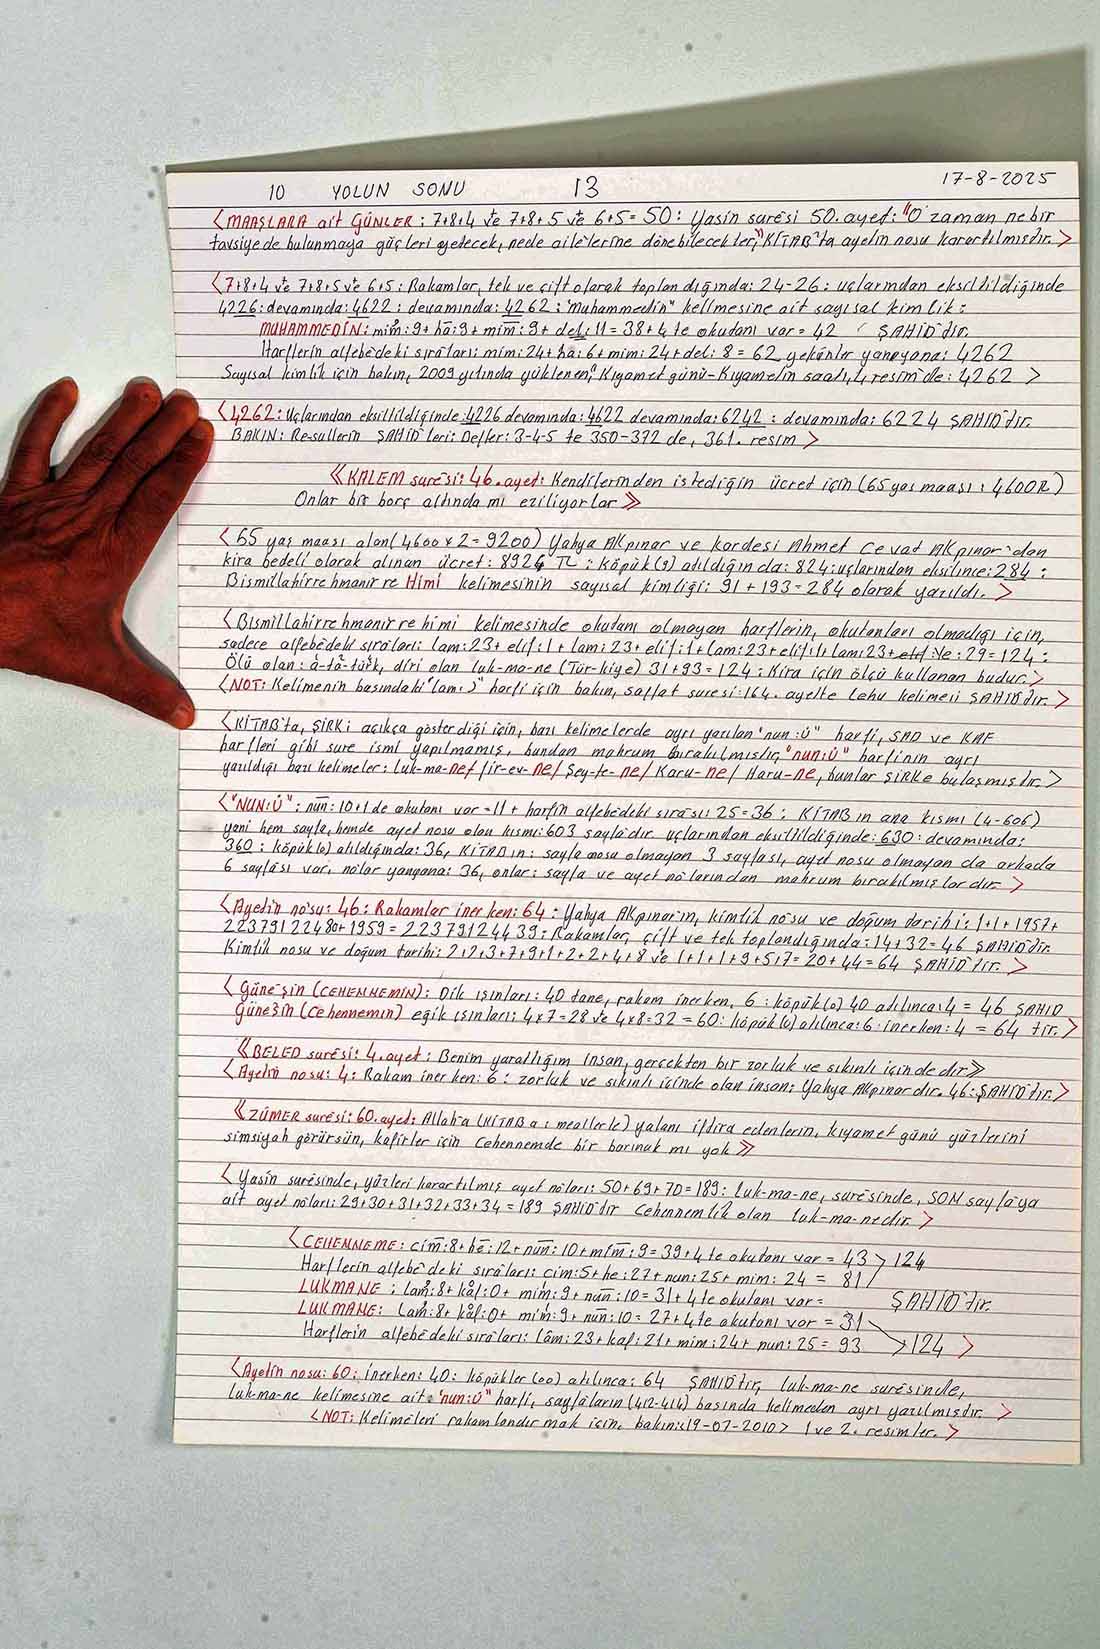 10 YOLUN SONU 13 17-8-2025
<MAAŞLARA ait GÜNLER: 7+8+4 ve 7+8+5 ve 6+5=50: Yasin suresi 50.ayet: "O zaman ne bir
tavsiyede bulunmaya güçleri yetecek, nede ailelerine dönebilecekler," KİTAB'ta ayetin nosu karartılmıştır.>
<7+8+4 ve 7+8+5 ve 6+5: Rakamlar, tek ve çift olarak toplandığında: 24-26: uçlarından eksiltildiğinde
4226: devamında: 4622: devamında: 4262: "Muhammedin" kelimesine ait sayısal kimlik:
MUHAMMEDİN: mim:9+ha:9+mim:9+del:11=38+4 te okutanı var=42 ŞAHİD'tir.
Harflerin alfebedeki sıraları: mim:24+ha:6+mim:24+del:8=62 yekünler yanyana: 4262
Sayısal kimlik için bakın, 2009 yılında yüklenen, "Kıyamet günü-Kıyametin saatı, 4 resim'de: 4262 >
<4262: Uçlarından eksiltildiğinde: 4226 devamında: 4622 devamında: 6242: devamında: 6224 ŞAHİD'tir.
BAKIN: Resullerin ŞAHİD'leri: Defter: 3-4-5 te 350-372 de, 361. resim >
<<KALEM suresi: 46.ayet: Kendilerinden istediğin ücret için (65 yaş maaşı: 4600₺)
Onlar bir borç altında mı eziliyorlar>>
<65 yaş maaşı alan (4600x2=9200) Yahya AKpınar ve kardeşi Ahmet Cevat AKpınar'dan
kira bedeli olarak alınan ücret: 8924 TL: köpük(9) atıldığında: 824: uçlarından eksilince: 284:
Bismillahirrehmanirre Himi kelimesinin sayısal kimliği: 91+193=284 olarak yazıldı.>
<Bismillahirrehmanirrehimi kelimesinde okutanı olmayan harflerin, okutanları olmadığı için,
sadece alfebedeki sıraları: lam:23+elif:1+lam:23+elif:1+lam:23+elif:1+lam:23+Ye:29=124:
Ölü olan: a-ta-türk, diri olan luk-ma-ne (Tür-kiye) 31+93=124: Kira için ölçü kullanan budur.>
<NOT: Kelimenin başındaki "lam:" harfi için bakın, saffat suresi: 164. ayette Lehu kelimesi ŞAHİD'tir.>
<KİTAB'ta, ŞİRKi açıkça gösterdiği için, bazı kelimelerde ayrı yazılan "nun:ü" harfi, SAD ve KAF
harfleri gibi sure ismi yapılmamış, bundan mahrum bırakılmıştır, "nun:ü" harfinin ayrı
yazıldığı bazı kelimeler: luk-ma-ne/ fir-ev-ne/ Şey-te-ne/ Karu-ne/ Haru-ne, bunlar ŞİRKe bulaşmıştır.>
<"NUN:Ü": nun:10+1 de okutanı var=11+harfin alfebedeki sırası 25=36: KİTABın ana kısmı (4-606)
yani hem sayfa, hemde ayet nosu olan kısmı: 603 sayfadır uçlarından eksiltildiğinde: 630: devamında:
360: köpük(0) atıldığında: 36, KİTABın: sayfa nosu olmayan 3 sayfası, ayet nosu olmayan da arkada
6 sayfası var, nolar yanyana: 36, onlar: sayfa ve ayet nolarından mahrum bırakılmışlardır.>
<Ayetin nosu: 46: Rakamlar inerken: 64: Yahya AKpınar'ın, kimlik nosu ve doğum tarihi: 1+1+1957+
22379122480+1959=22379124439: Rakamlar, çift ve tek toplandığında: 14+32=46 ŞAHİD'tir.
Kimlik nosu ve doğum tarihi: 2+2+3+7+9+1+2+2+4+8 ve 1+1+1+9+5+7=20+44=64 ŞAHİD'tir.>
<Güneşin (CEHENNEMİN): Dik ışınları: 40 tane, rakam inerken, 6: köpük(0) 40 atılınca: 4=46 ŞAHİD
Güneşin (Cehennemin) eğik ışınları: 4x7=28 ve 4x8=32=60: köpük(0) atılınca: 6: inerken: 4=64 tir.>
<<BELED suresi: 4.ayet: Benim yarattığım İnsan, gerçekten bir zorluk ve sıkıntı içindedir>>
<Ayetin nosu: 4: Rakam inerken: 6: zorluk ve sıkıntı içinde olan insan: Yahya AKpınar'dır. 46: ŞAHİD'tir.>
<<ZÜMER suresi: 60.ayet: Allah-a (KİTABa: meallerle) yalanı iftira edenlerin, kıyamet günü yüzlerini
simsiyah görürsün, kafirler için Cehennemde bir barınak mı yok>>
<Yasin suresinde, yüzleri karartılmış ayet noları: 50+69+70=189: luk-ma-ne, suresinde, SON sayfaya
ait ayet noları: 29+30+31+32+33+34=189 ŞAHİD'tir Cehennemlik olan luk-ma-nedir.>
<CEHENNEME: cim:8+he:12+nun:10+mim:9=39+4 te okutanı var=43 > 124
Harflerin alfebedeki sıraları: cim:5+he:27+nun:25+mim:24=81
LUKMANE: lam:8+kaf:0+mim:9+nun:10=31+4 te okutanı var= ŞAHİD'tir.
LUKMANE: lam:8+kaf:0+mim:9+nun:10=27+4 te okutanı var=31
Harflerin alfebedeki sıraları: lam:23+kaf:21+mim:24+nun:25=93 >124 >
<Ayetin nosu: 60: inerken: 40: köpükler (00) atılınca: 64 ŞAHİD'tir, luk-ma-ne suresinde,
luk-ma-ne kelimesine ait: "nun:ü" harfi, sayfaların (412-414) başında kelimeden ayrı yazılmıştır.>
<NOT: Kelimeleri rakamlandırmak için, bakın: <19-07-2010> 1 ve 2. resimler.>